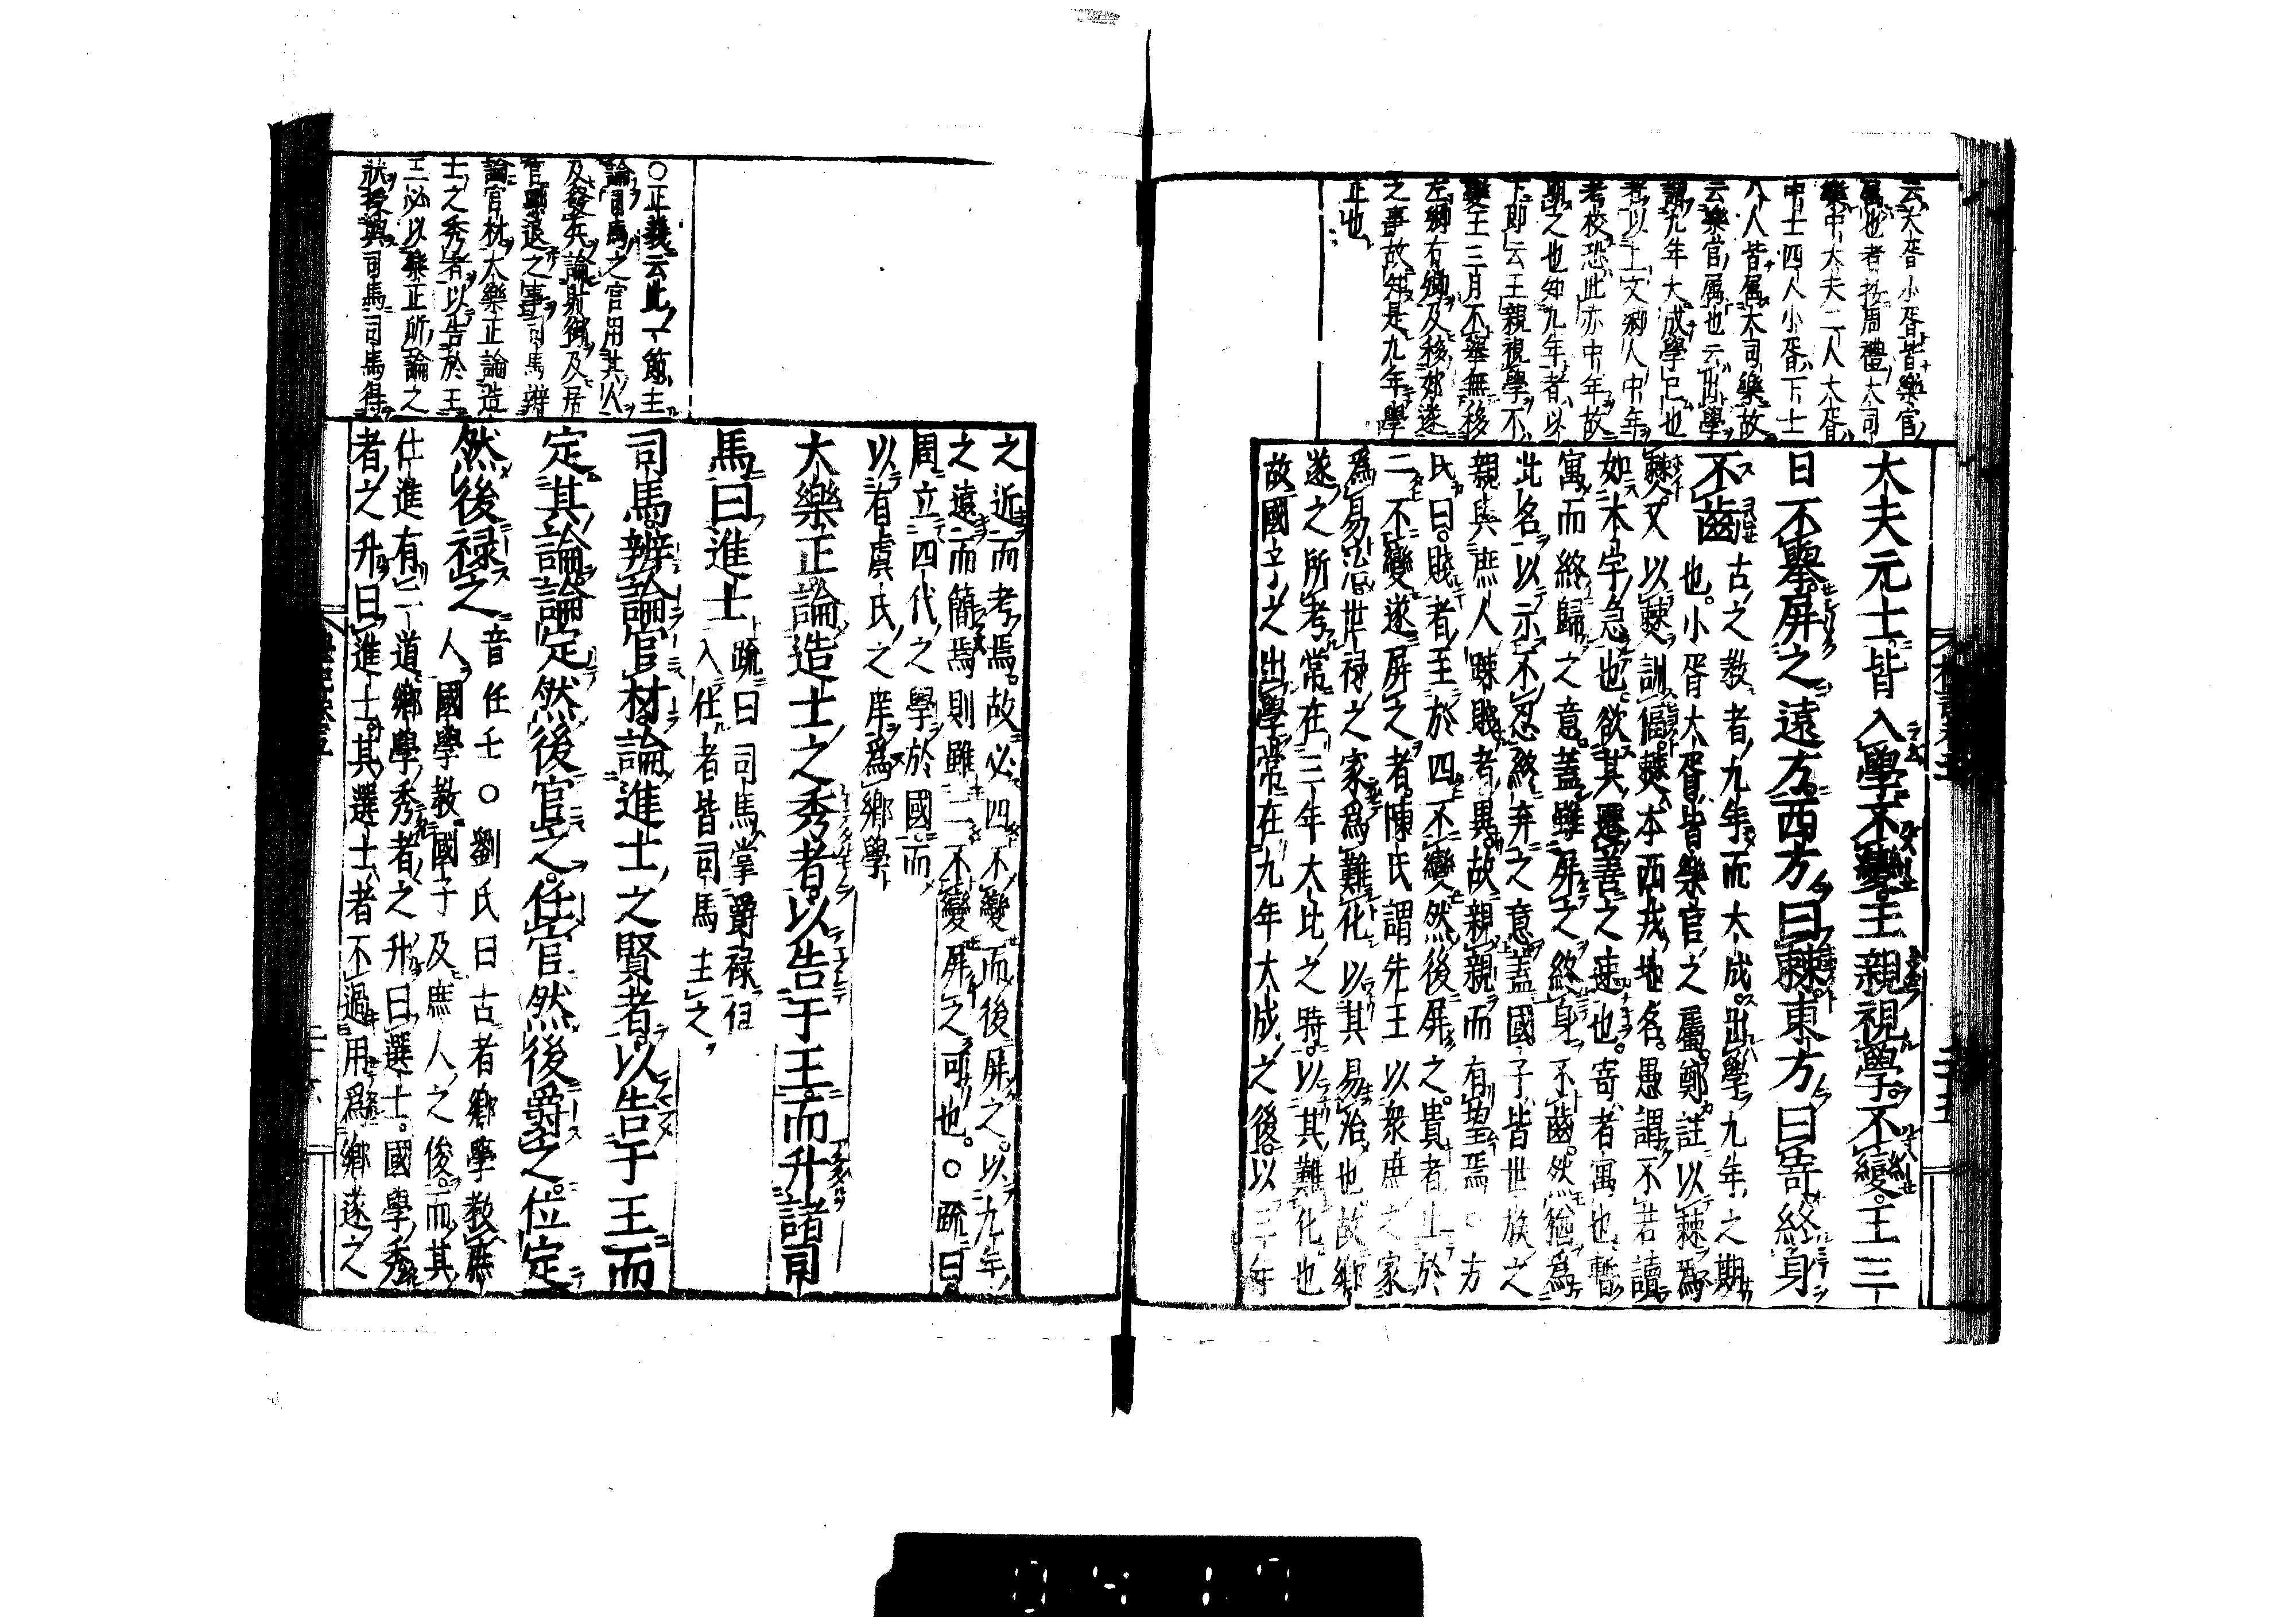 云大胥小胥皆樂官
屬也者按周禮大司
樂中大夫二人大胥
中士四人小胥下士
八人皆屬大司樂故
云樂官屬也云出學
謂九年大成學已也
者以上文鄉人中年
考校恐此亦中年故
期之也知九年者以
下即云王親視學不
變王三月不舉無移
左鄉右鄉及移郊遂
之事故知是九年學
正也
大夫元士皆入學不變王親視學不變王三
日不舉屏之遠方西方曰棘東方曰寄終身
不齒 古之教者九年而大成出學九年之期
也小胥大胥皆樂官之屬鄭註以棘爲
僰又以僰訓偪僰本西戎地名愚謂不若讀
如本字急也欲其遷善之速也寄者寓也暫
寓而終歸之意蓋雖屏之終身不齒然猶爲
此名以示不忍終弃之意蓋國子皆世族之
親與庶人踈賤者異故親親而有望焉○方
氏曰賤者至於四不變然後屏之貴者止於
二不變遂屏之者陳氏謂先王以衆庶之家
爲易治世禄之家爲難化以其易治也故鄉
遂之所考常在三年大比之時以其難化也
故國子之出學常在九年大成之後以三年
之近而考焉故必四不變而後屏之以九年
之遠而簡焉則雖二不變屏之可也○疏曰
周立四代之學於國而
以有虞氏之庠爲鄉學
大樂正論造士之秀者以告于王而升諸司
馬曰進士 疏曰司馬掌爵禄但
入仕者皆司馬主之
司馬辨論官材論進士之賢者以告于王而
定其論論定然後官之任官然後爵之位定
然後禄之 音任壬○劉氏曰古者鄉學教庶
人國學教國子及庶人之俊而其
仕進有二道鄉學秀者之升曰選士國學秀
者之升曰進士其選士者不過用爲鄉遂之
○正義云此一節主
論司馬之官用其人
及發兵論射御及居
官黜退之事司馬辨
論官材大樂正論造
士之秀者以告於王
三必以樂正所論之
狀授與司馬司馬得